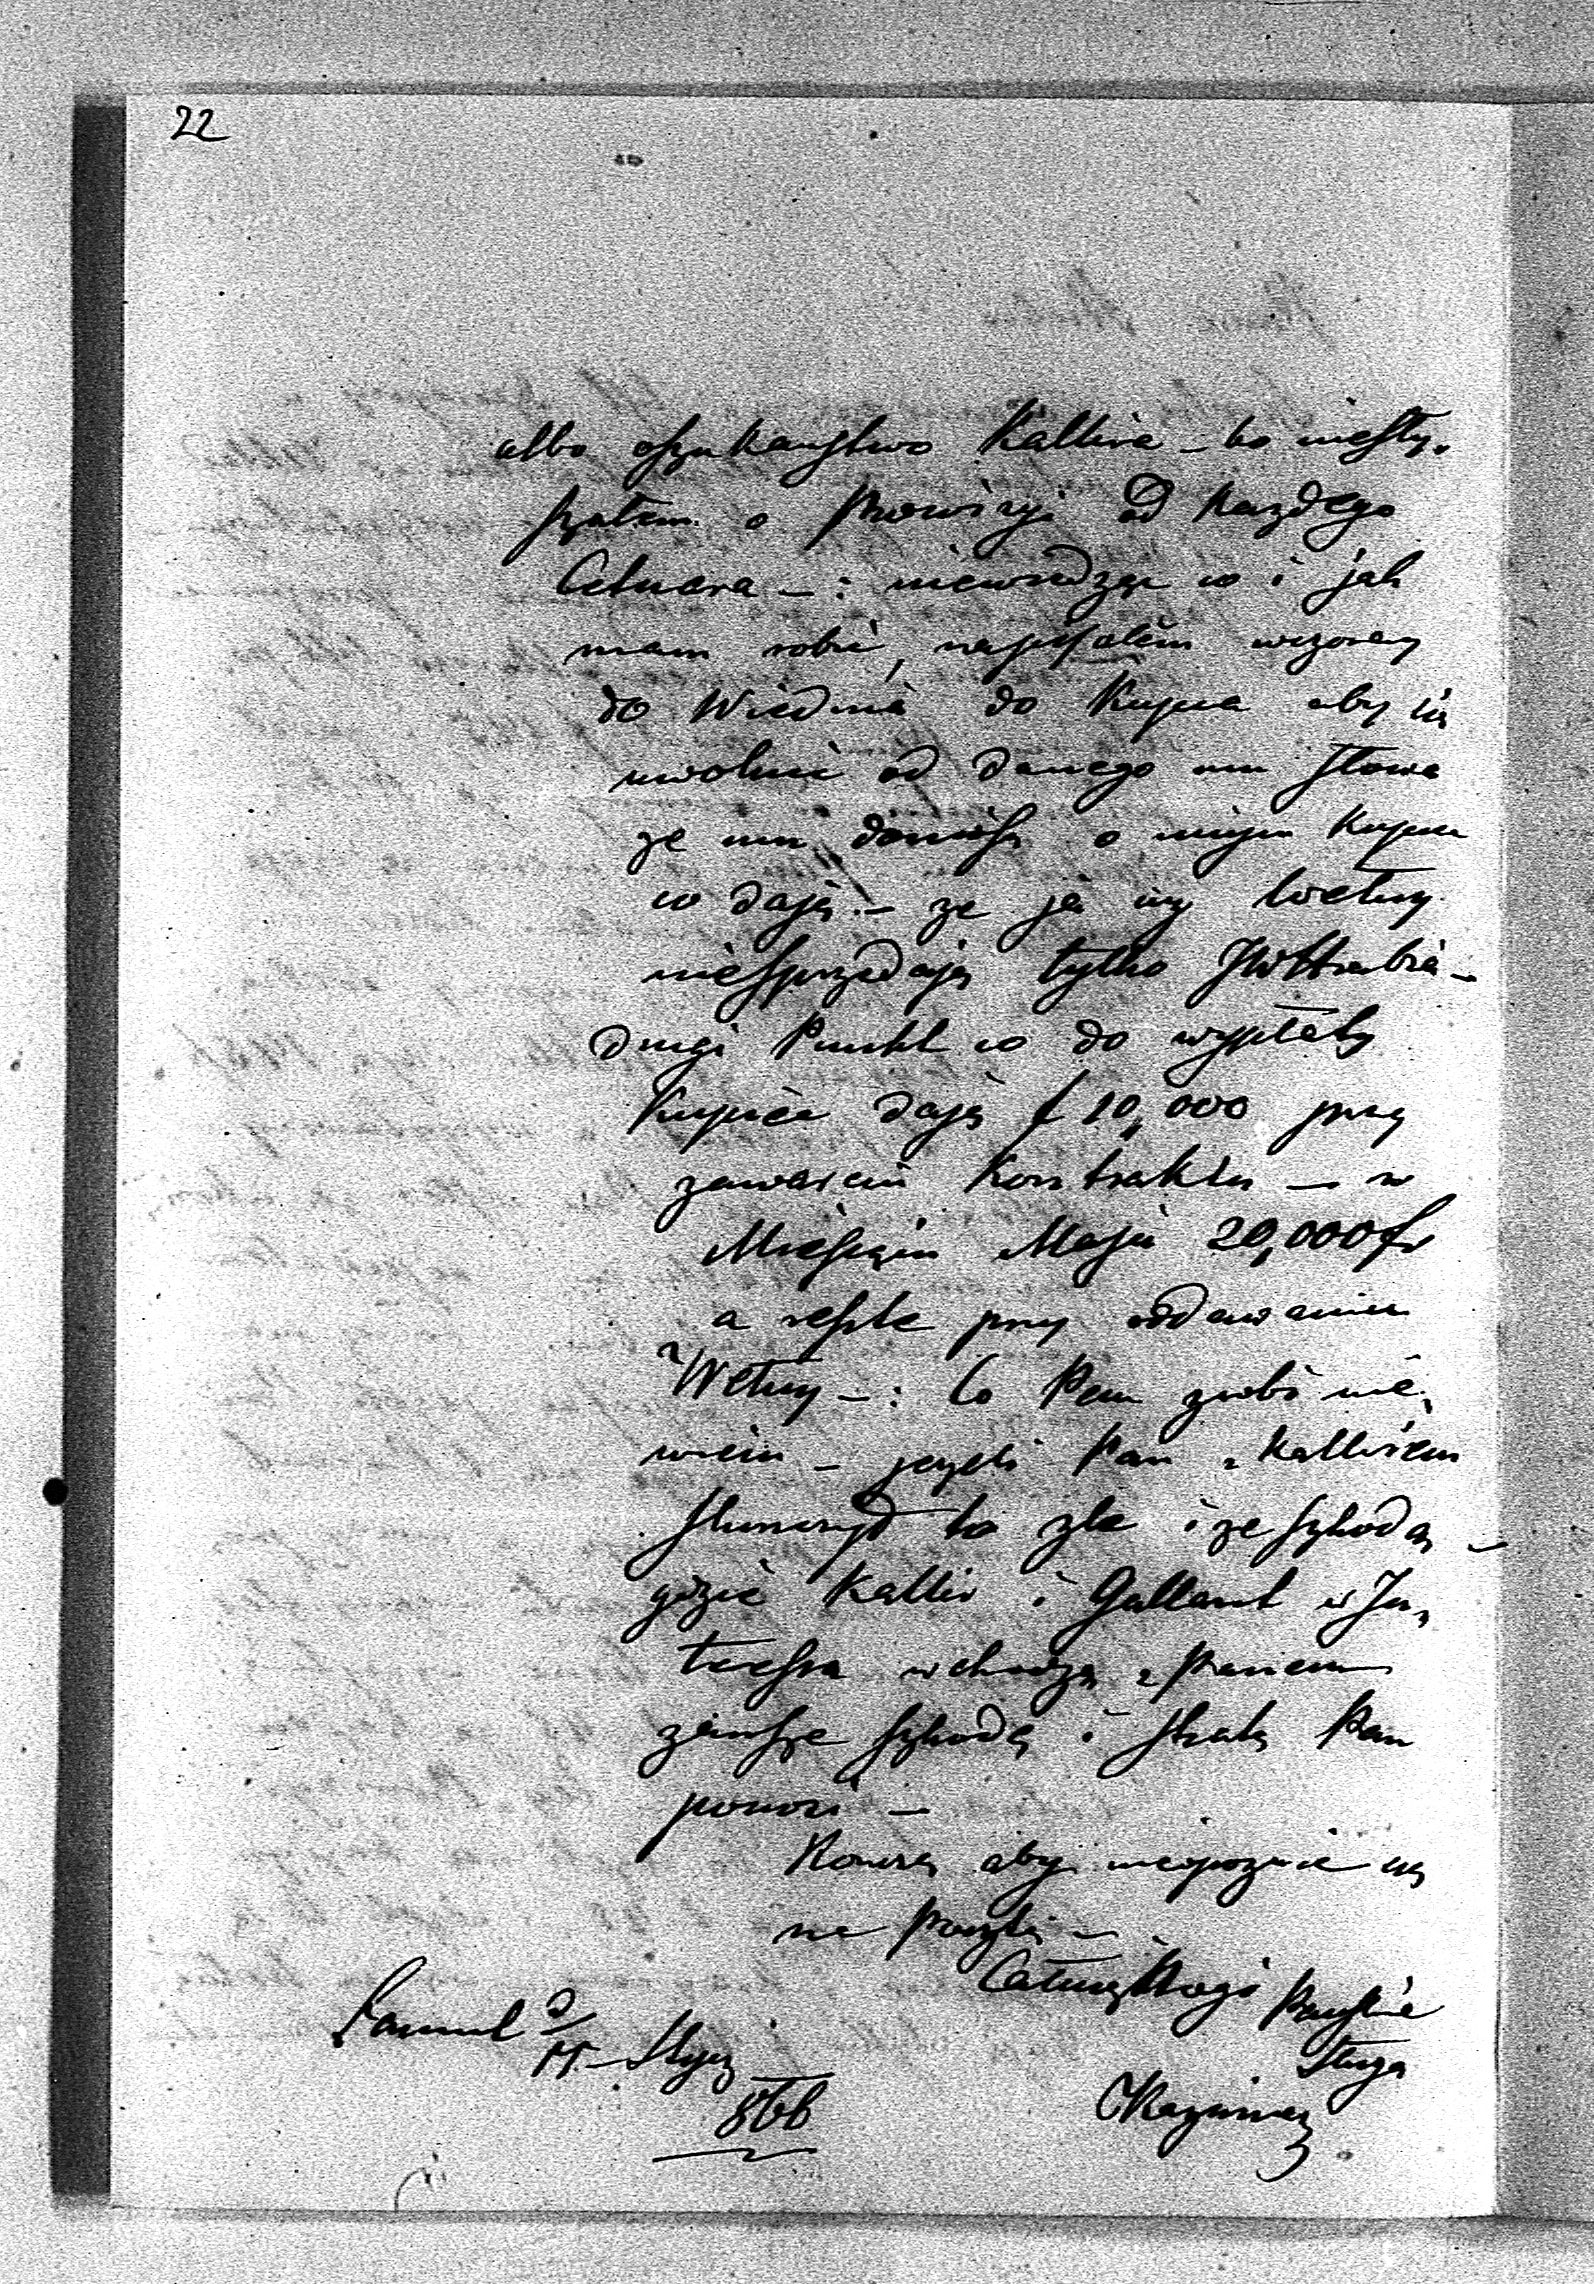 22
albo oszukaństwo Kallira – bo niesły-
szałem o prowizyi od każdego
Cetnara –: niewiedząc co i jak
mam robić, napisałem wczoray
do Wiednia do Kupca aby się
uwolnić od danego mu słowa
ze mu doniosę o mojm Kupcu
co daje – ze ja mu wełny
niesprzedaję tylko JWHrabia –
drugi Punkt co do wypłaty
Kupiec daje f 10,000 przy
zawarciu Kontraktu – w
Miesiącu Maju 20,000 fr
a resztę przy oddawaniu
Wełny –: Co Pan zrobi nie
wiem – jeżeli Pan z Kallirem
skończył to źle i ze szkodą –
gdzie Kallir i Gallant w In-
teressa wchodzą z Panem
zawsze szkodę i stratę Pan
ponosi –
Kończę aby nieopoznić się
na pocztę –
Całuję Nogi Pańskie
Sługa
Kazimierz
9/11 – Stycz
866